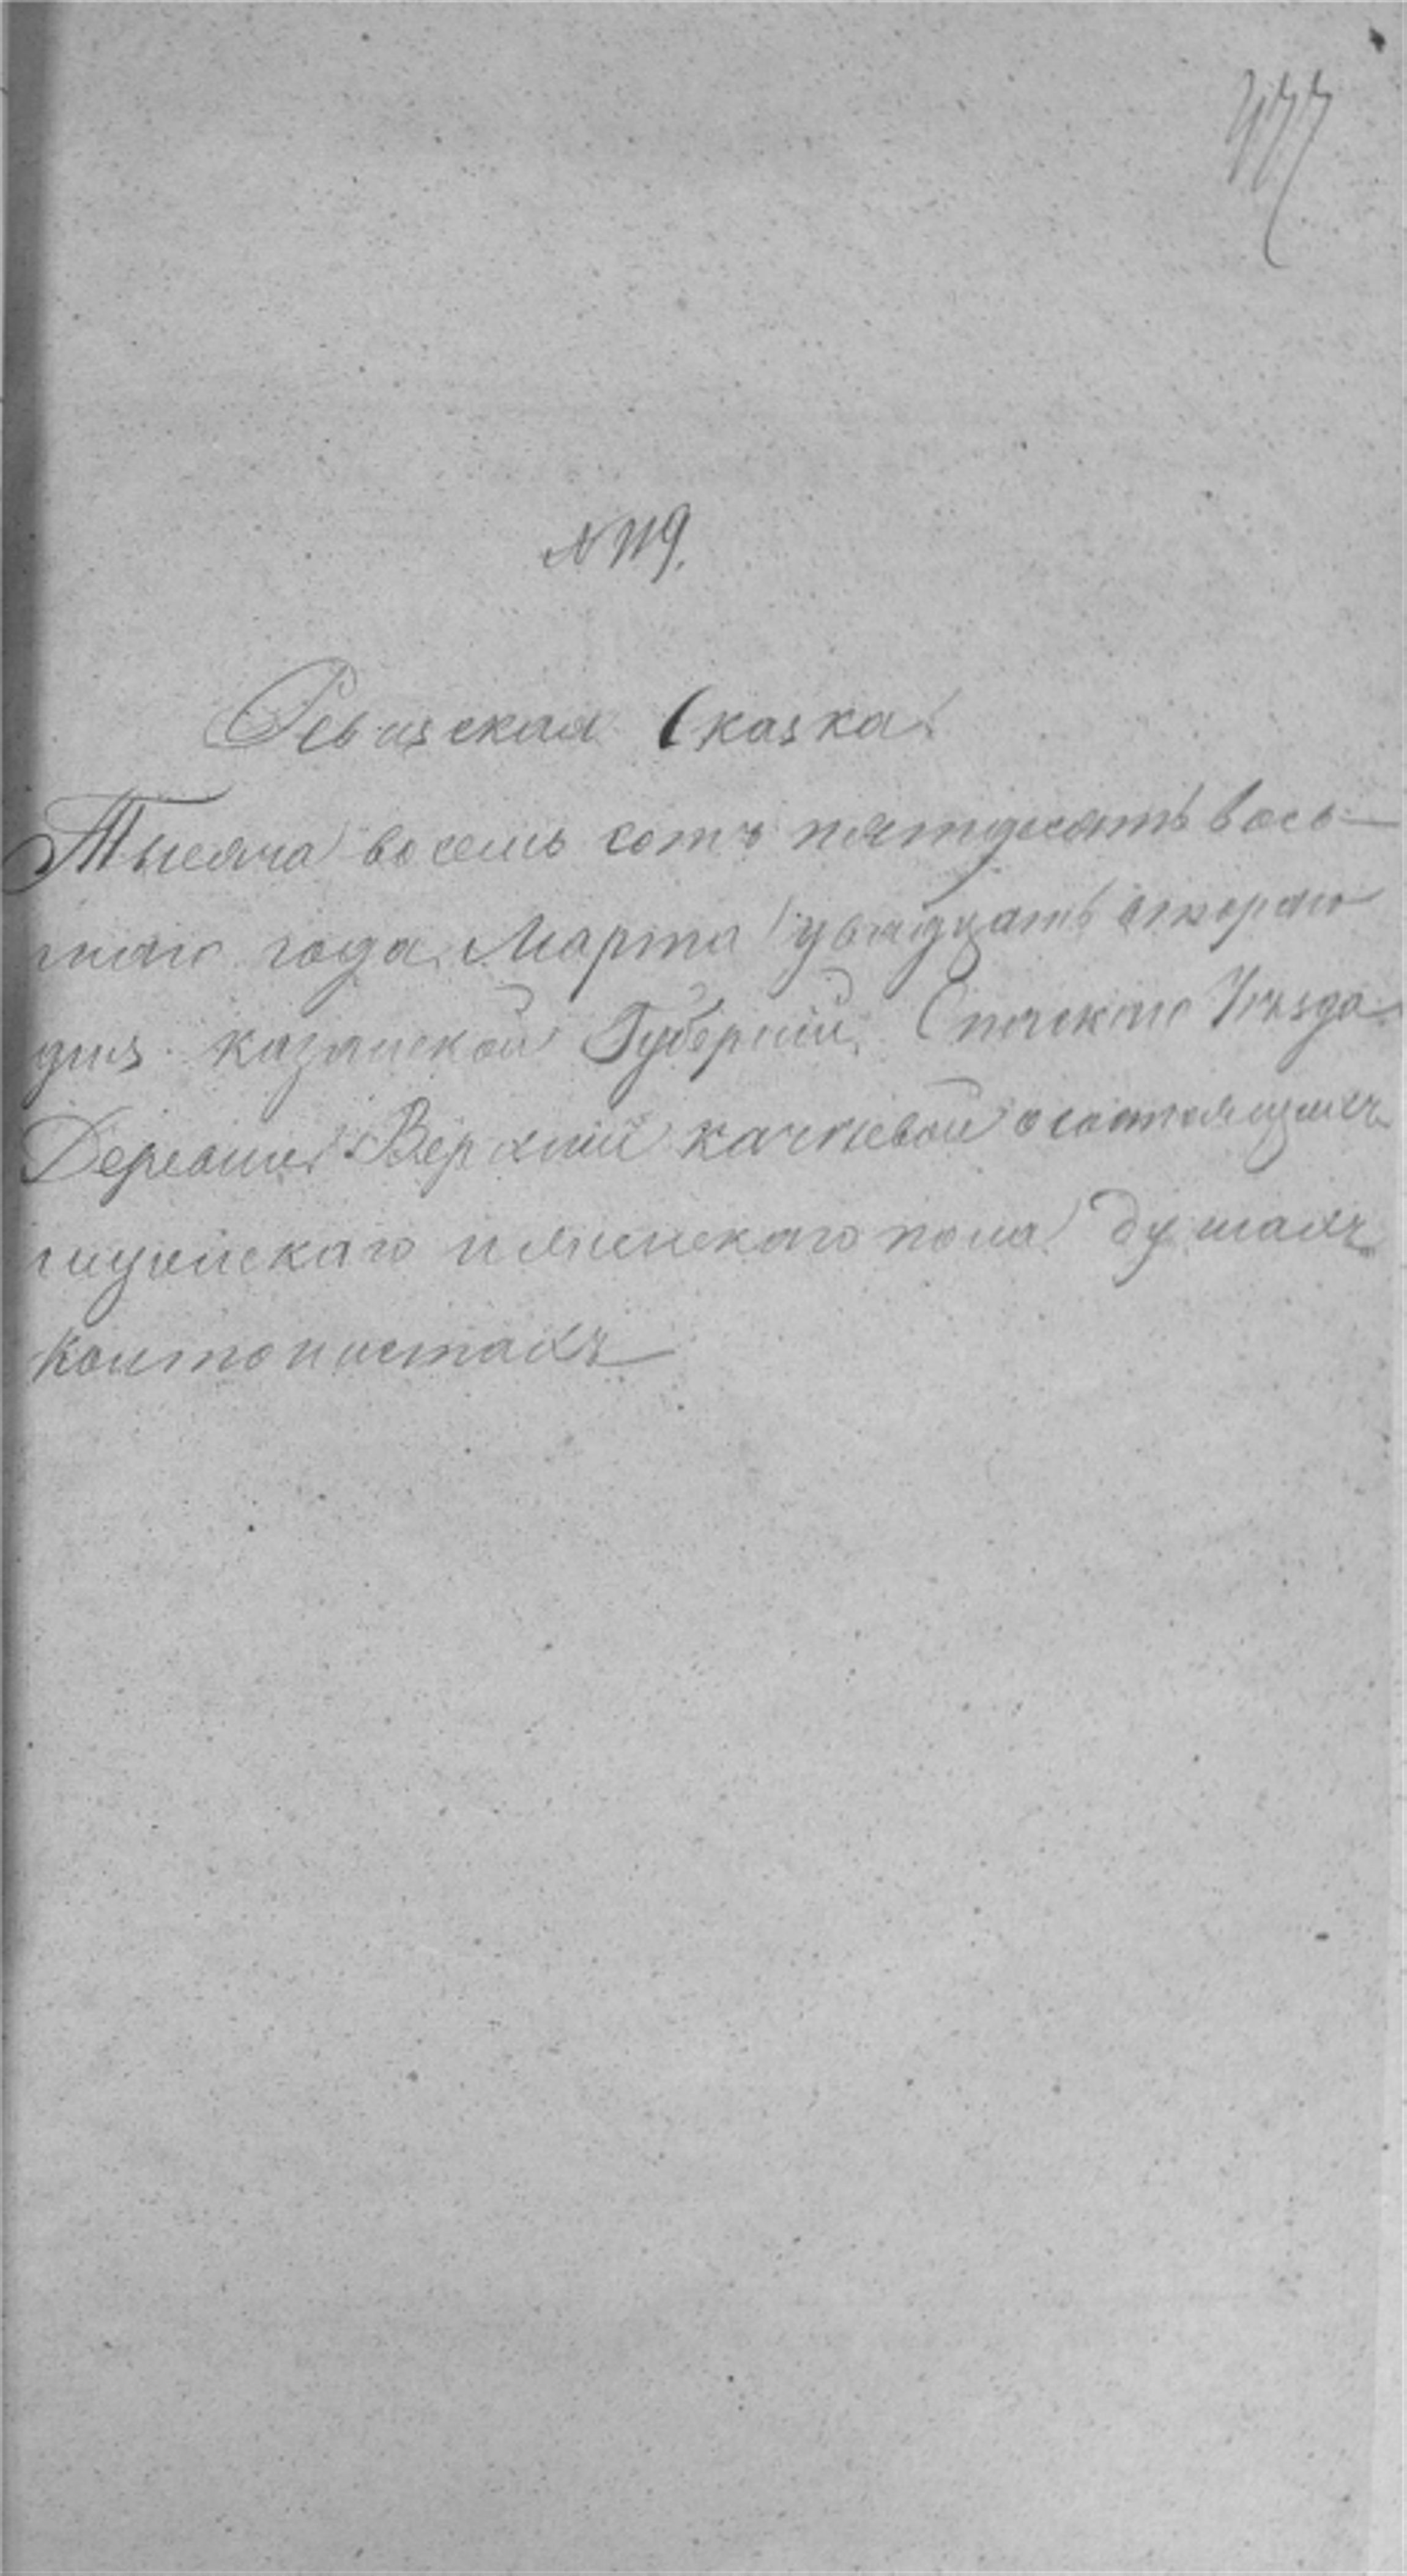 477
N 119.
Ревизская Сказка.
Тысяча восемь сотъ пятдесятъ вось-
маго года Марта двадцать втораго
дня казанской Губерніи, Спаскаго Уѣзда
Деревни Верхній качеевой осостоящихъ
мужескаго иженскаго пола душахъ
контонистахъ